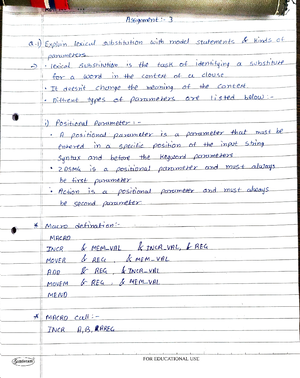 Assignment :- 3
Q.1) Explain lexical substitution with model statements & kinds of
parameters.
→ • Lexical substitution is the task of identifying a substitute
for a word in the context of a clause.
• It doesn't change the meaning of the context.
• Different types of parameters are listed below :-
i) Positional Parameter :-
• A positional parameter is a parameter that must be
entered in a specific position of the input string
syntax and before the keyword parameters.
• is a positional parameter and must always
be first parameter.
• Action is a positional parameter and must always
be second parameter.
* Macro defination:-
MACRO
INCR & MEM_VAL & INCR_VAL, & REG
MOVER & REG , & MEM_VAL
ADD & REG , & INCR_VAL
MOVEM & REG , & MEM_VAL
MEND
* MACRO call :-
INCR A, B, AREG
Sundaram
FOR EDUCATIONAL USE